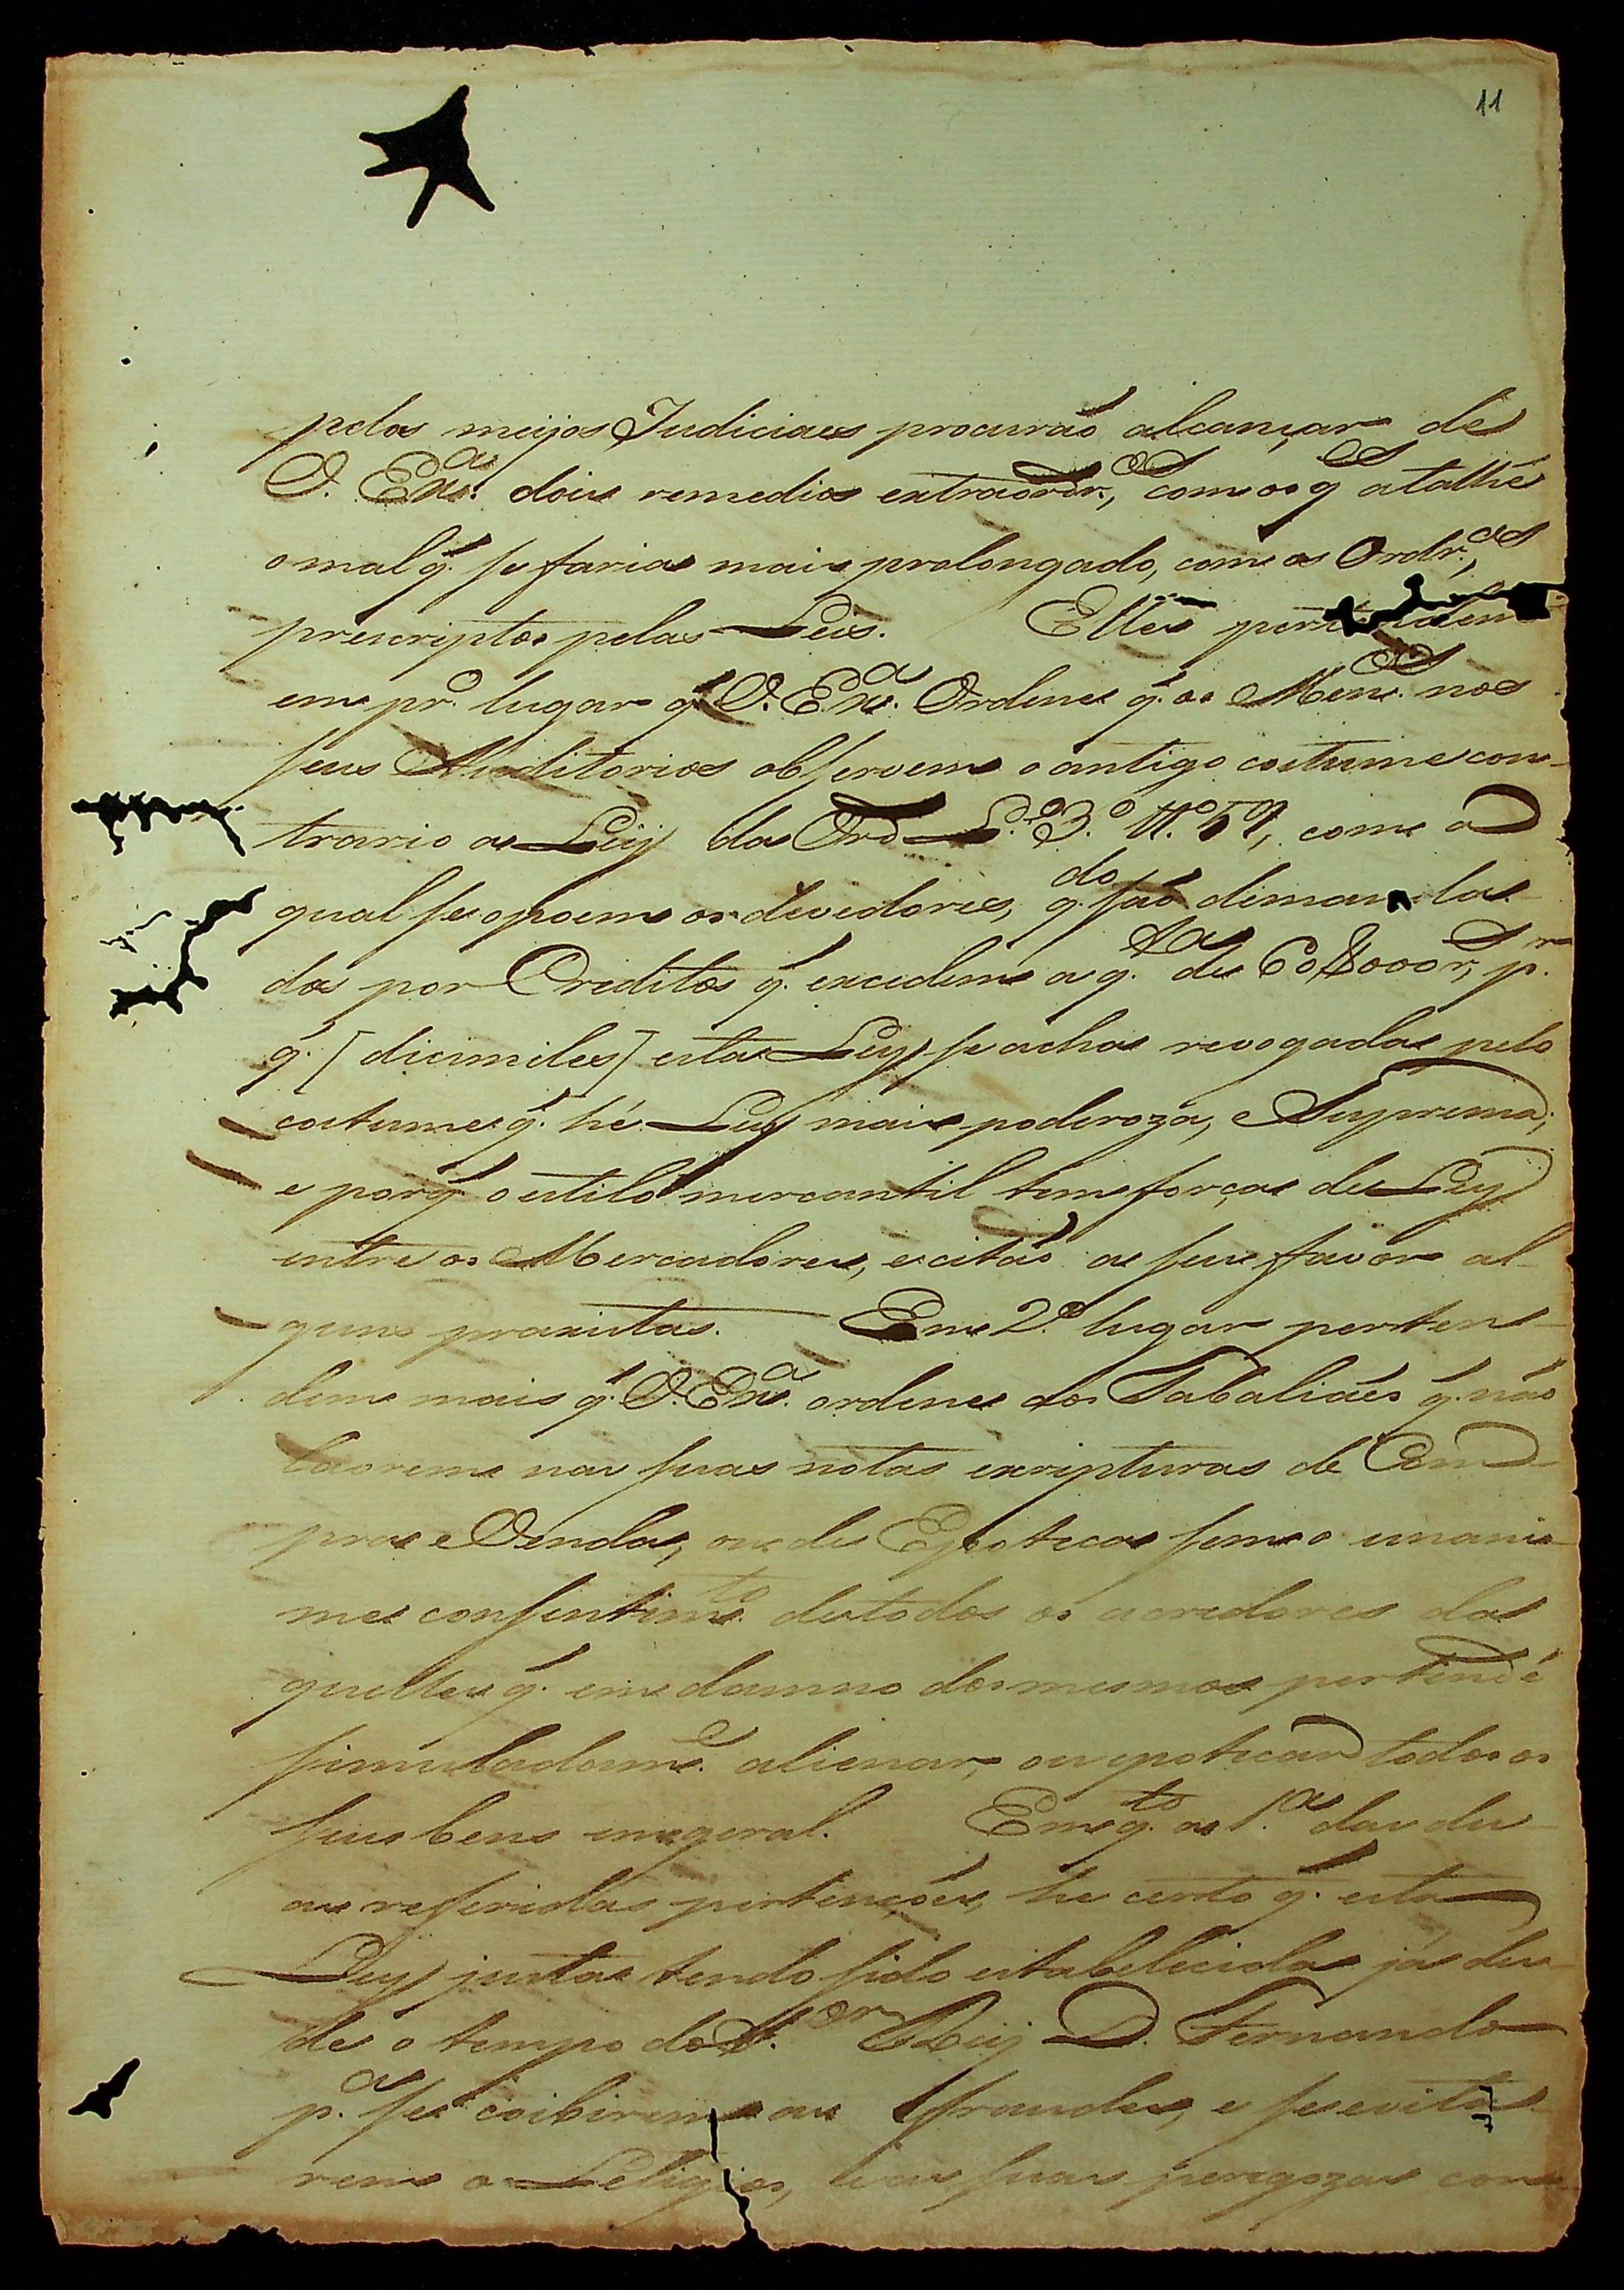 11
pelos meijos Judiciaes procurão alcançar de
V. Exa. dois remedios extraordr.os, com os q atalhe
o mal q. se faria mais prolongado, com os Ordr.os,
prescriptos pelas Leis. Elles
em pr.o lugar q. V. Exa. Ordene q. os Men.os nos
seus Auditorios observem o antigo costume con-
trario a Leÿ da Ord L.o 3.o tt.o 59, com o
qual se opoem os devedores, q.do são demanda-
dos por Creditos q. excedem a q.ta de 60$000 rs, p.r
q. [dicimiles] esta Ley se acha revogada pelo
costume q. hé Ley mais poderoza, e Suprema;
e porq. o estilo mercantil tem força de Ley
entre os Mercadores, e citão a seu favor al-
guns praxistas. Em 2.o lugar perten-
dem mais q. V. Exa. ordene aos Tabaliáes q. não
lavrem nas suas notas escripturas de Com-
pra e Venda, ou de Epoteca sem o unani-
me consentim.to de todos os acredores da-
quelles q. em damno dos mesmos pertendé
simuladam.e alienar, ou epotecar todos os
seus bens em geral. Em q.to a 1.a das du-
as referidas pertenções, he certo q. esta
Ley justa tendo sido estabelecida já des-
de o tempo do S.or Reÿ D. Fernando
p.a se coibirem as fraudes, e se evita-
rem os Letigios, e as suas perigozas con-